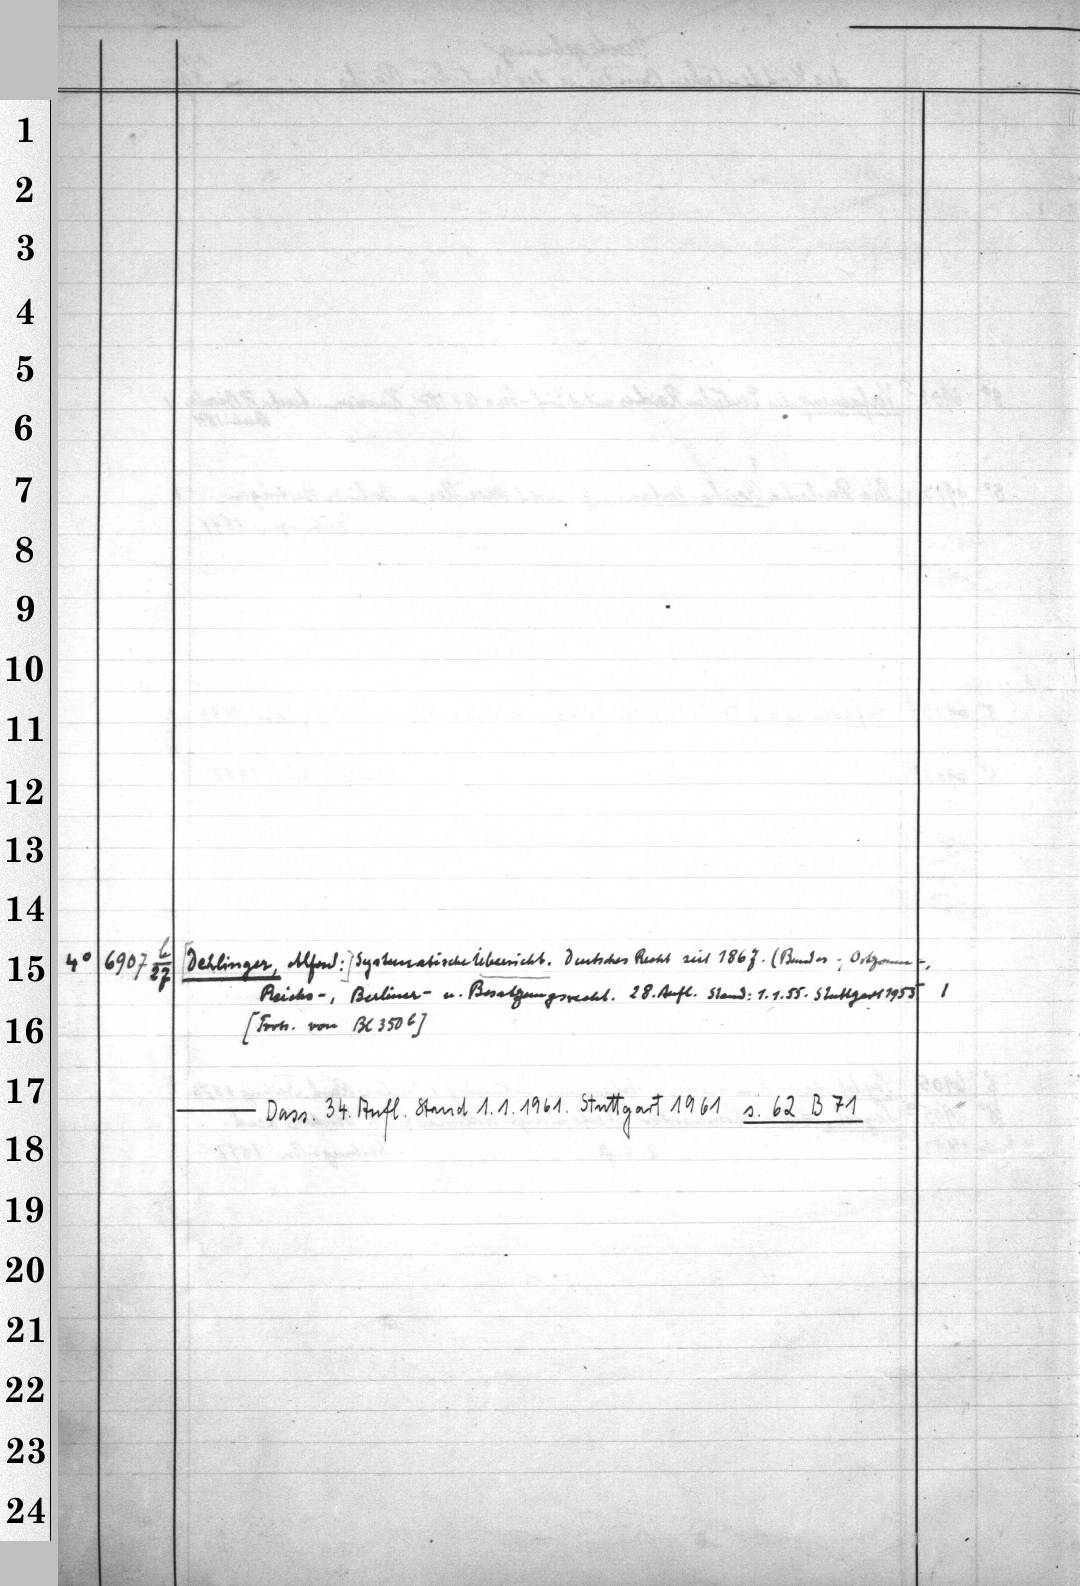 1
2
3
4
5
6
7
8
9
10
11
12
13
14
15
16
17
18
19
20
21
22
23
24
4° 6907 b/27 [Dehlinger, Alfred:] Systematische Übersicht. Deutsches Recht seit 1867. (Bundes-, Ostzonen-,
Reichs-, Berliner- u. Besatzungsrecht. 28. Aufl. Stand: 1.1.55. Stuttgart 1955 1
[Forts. von BC 350 b]
Dass. 34. Aufl. Stand 1.1.1961. Stuttgart 1961 s. 62 B 71